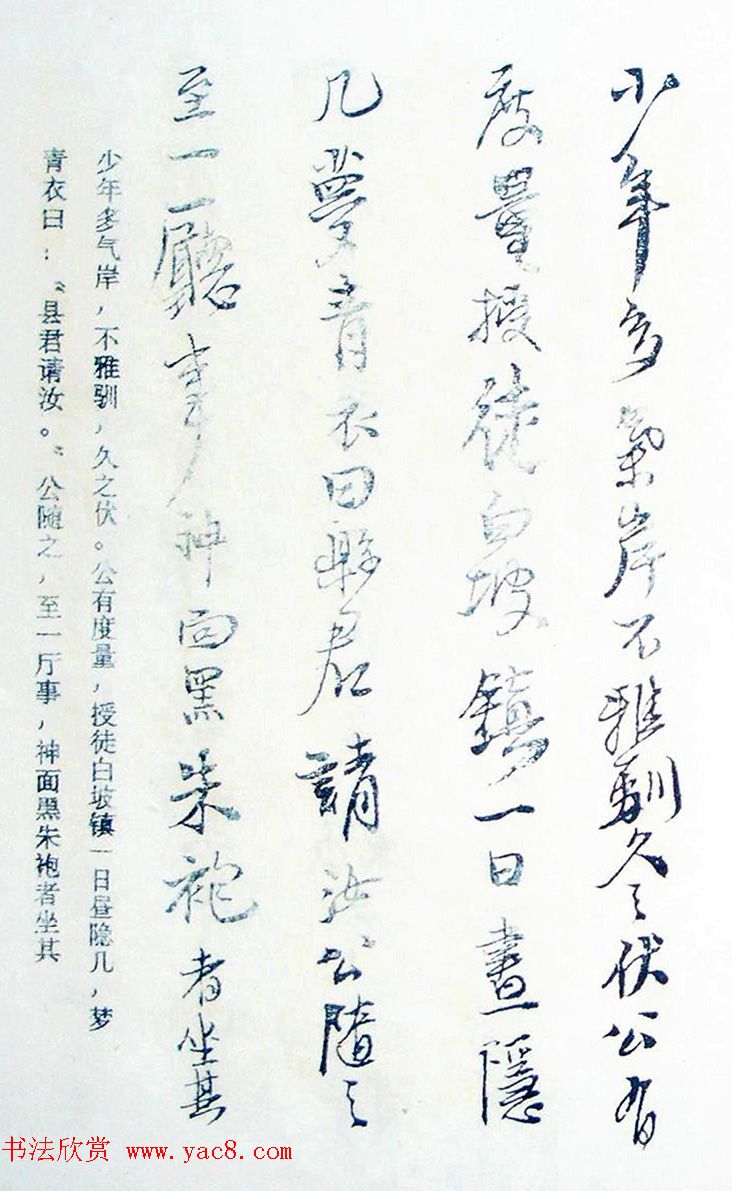 少年多氣岸不雅馴久之伏公有
度量授徒白坡鎮一日晝隱
几夢青衣曰縣君請汝公隨之
至一廳事神面黑朱袍者坐其
少年多气岸，不雅驯，久之伏。公有度量，授徒白坡镇一日昼隐几，梦
青衣曰：“县君请汝。”公随之，至一厅事，神面黑朱袍者坐其
书法欣赏 www.yac8.com